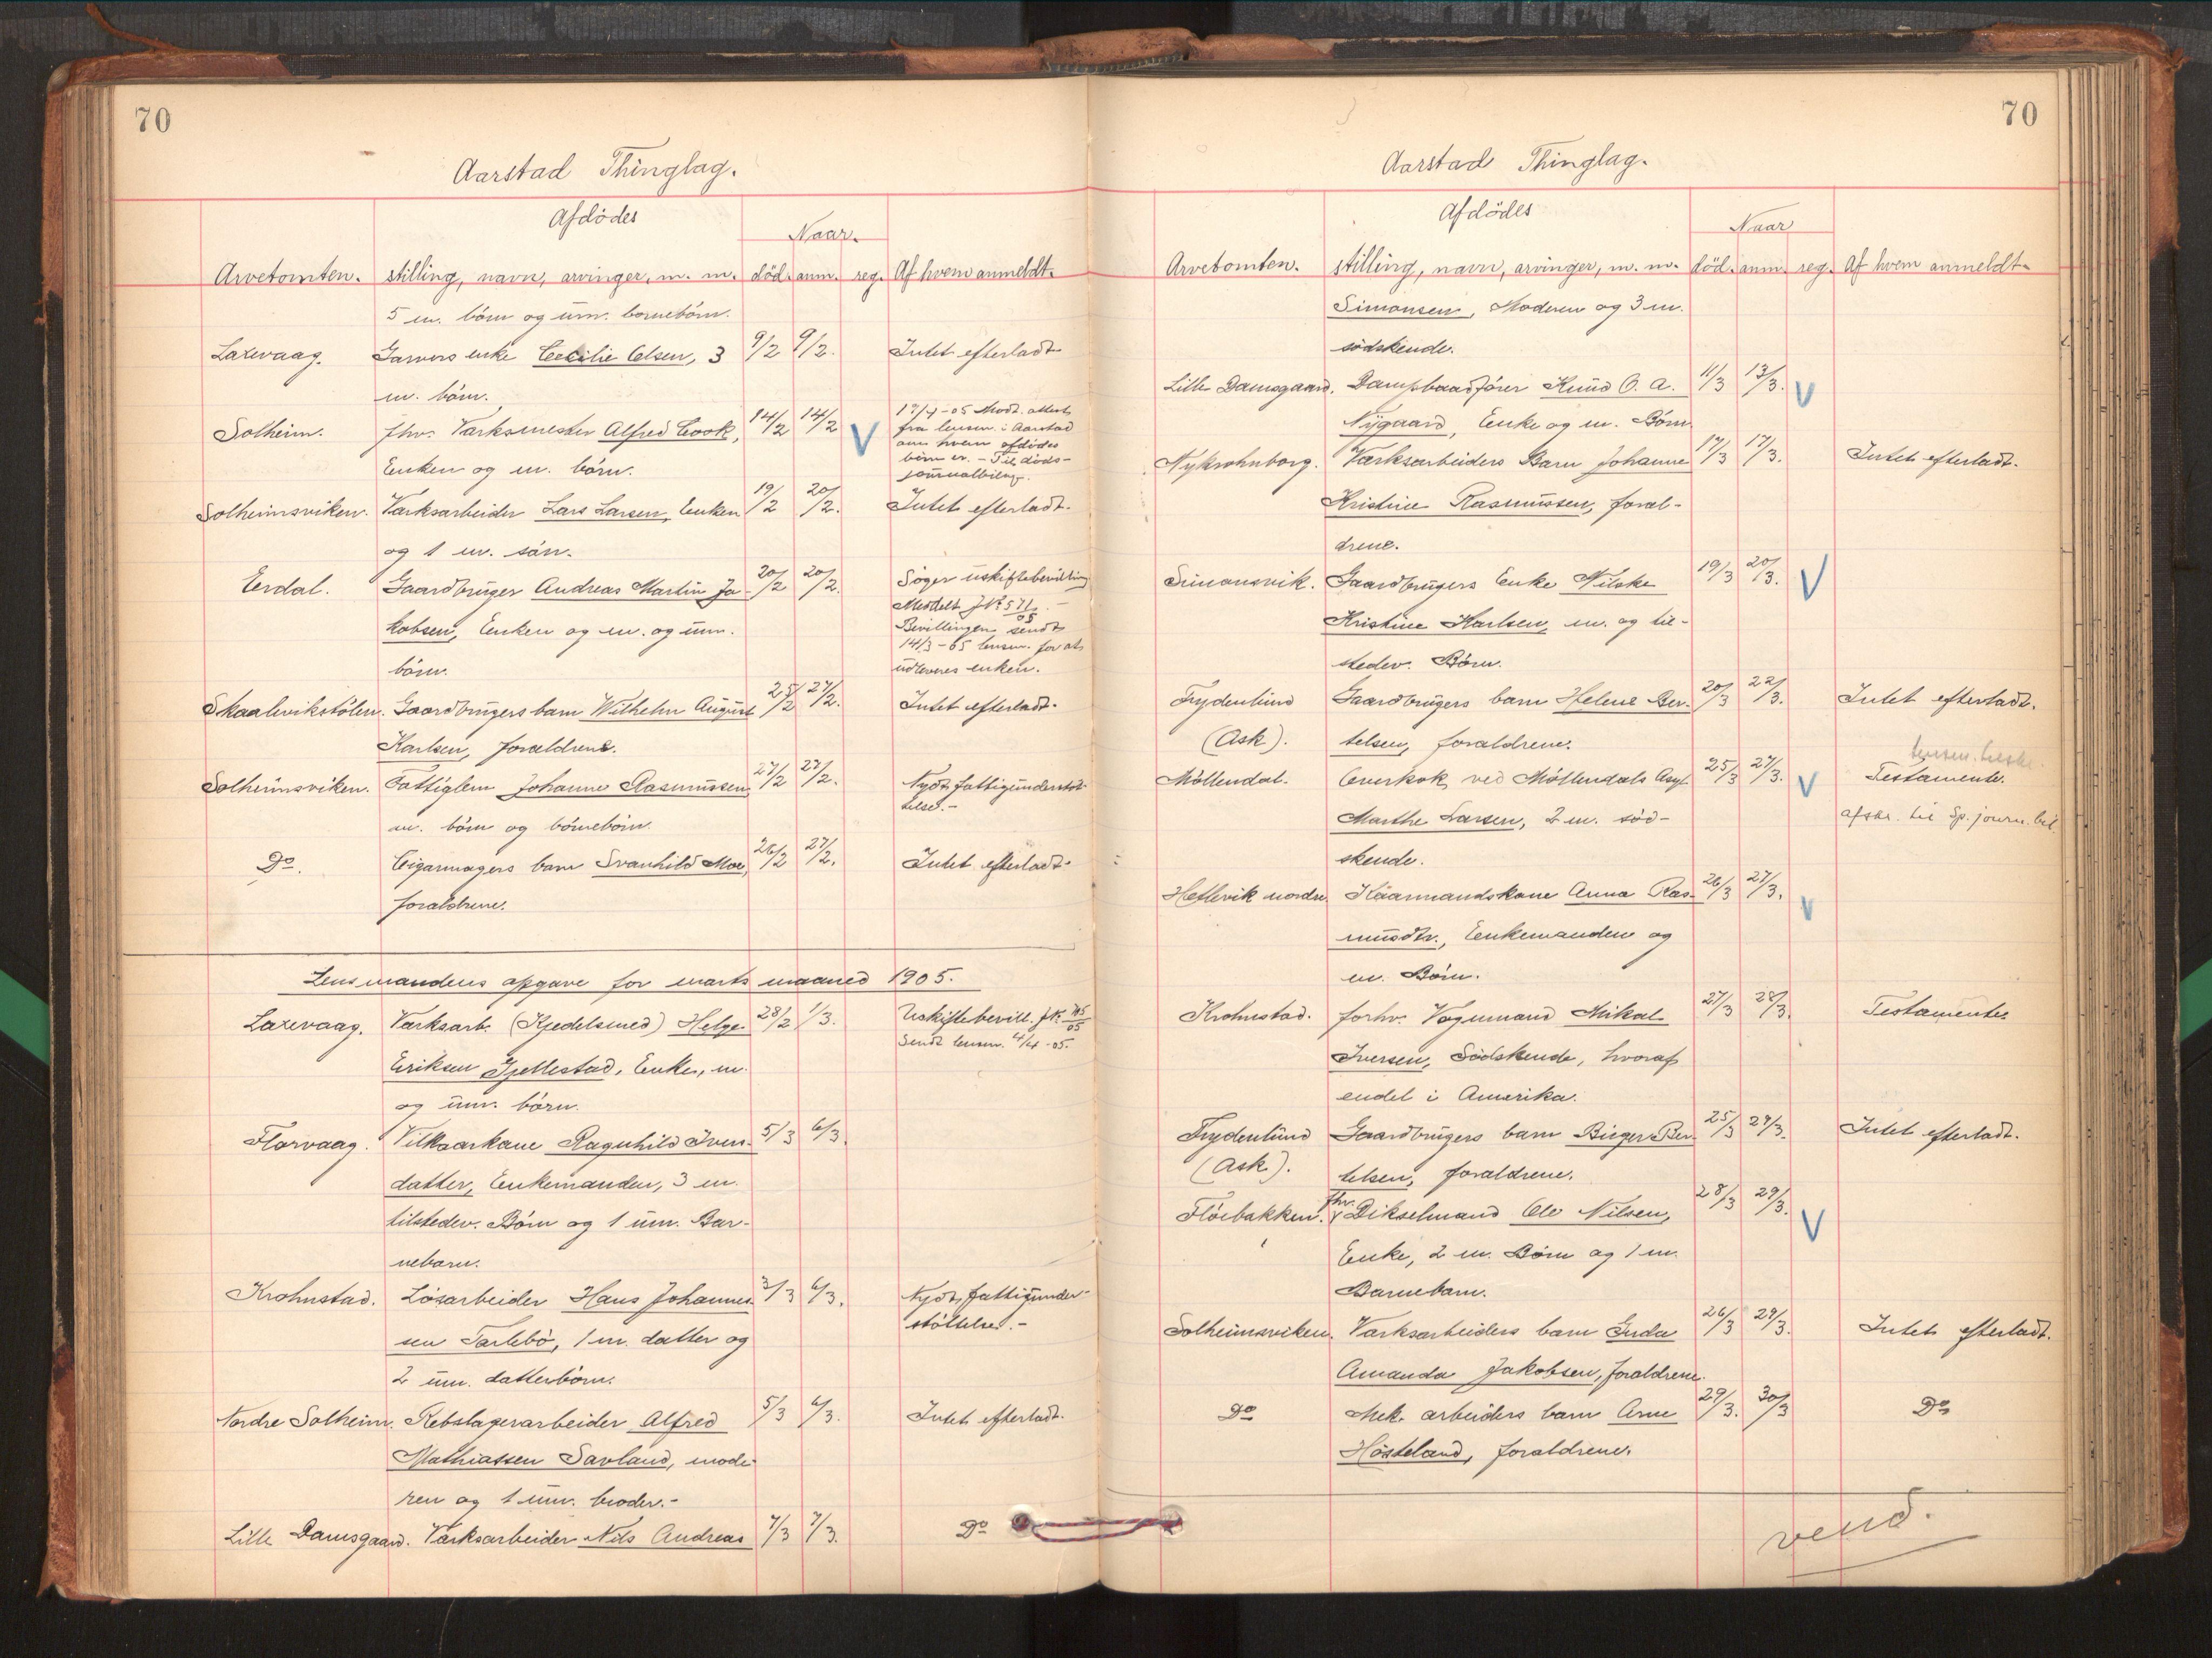 70
Aarstad Thinglag.
Afdödes
Naar.
Arvetomten. stilling, navn, arvinger, m. m. död. anm. reg. Af hvem anmeldt.
5 m. börn og um. börnebörn.
Laxevaag. Garvers enke Cecilie Olsen, 3 9/2 9/2. Intet efterladt.
m. börn.
Solheim. fhv. Værksmester Alfred Cook, 14/2 14/2 V
Enken og m. börn.
17/4-05 Modt. attest
fra lensm. i Aarstad
om hvem afdödes
börn er. - Til döds-
journalbilag.
Solheimsviken. Værksarbeider Lars Larsen, Enken 19/2 20/2. Intet efterladt.
og 1 m. sön.
Eerdal. Gaardbruger Andreas Martin Ja- 20/2 20/2. Söger uskiftebevilling
kobsen, Enken og m. og um.
börn.
Meddelt J.No 571/05. -
Bevillingen sendt
14/3-05 lensm. for at
udleveres enken.
Skaalevikstölen. Gaardbrugers barn Wilhelm August 25/2 27/2. Intet efterladt.
Karlsen, forældrene.
Solheimsviken. Fattiglem Johanne Rasmussen 27/2 27/2. Nydt fattigunderstöt-
telse. -
m. börn og börnebörn.
Do. Cigarmagers barn Svanhild Moe, 26/2 27/2. Intet efterladt.
forældrene.
Lensmandens opgave for marts maaned 1905.
Laxevaag. Værksarb. (Kjedelsmed) Helge 28/2 1/3. Uskiftebevill. J.No 715/05
Sendt lensm. 4/4-05.
Eriksen Gjellestad, Enke, m.
og um. börn.
Florvaag. Vilkaarkane Ragnhild Ivers- 5/3 6/3.
datter, Enkemanden, 3 m.
tilstedev. Börn og 1 um. Bar-
nebarn.
Krohnstad. Lösarbeider Hans Johannes- 3/3 6/3. Nydt fattigunder-
stöttelse. -
sen Tarlebö, 1 m. datter og
2 um. datterbörn.
Nordre Solheim. Rebslagerarbeider Alfred 5/3 6/3. Intet efterladt.
Mathiassen Savland, mode-
ren og 1 um. broder. -
Lille Damsgaard. Værksarbeider Nils Andreas 7/3 7/3. Do
70
Aarstad Thinglag.
Afdödes
Naar
Arvetomten. stilling, navn, arvinger, m. m. död. anm. reg. Af hvem anmeldt.
Simonsen, Moderen og 3 m.
södskende.
Lille Damsgaard. Dampbaadförer Knud O. A. 11/3 13/3. V
Nygaard, Enke og m. Börn.
Nykrohnborg. Værksarbeiders Barn Johanne 17/3 17/3. Intet efterladt.
Kristine Rasmussen, foræl-
drene.
Simonsvik. Gaardbrugers Enke Nilske 19/3 20/3. V
Kristine Karlsen, m. og til-
stedev. Börn.
Frydenlund Gaardbrugers barn Helene Ber- 20/3 22/3. Intet efterladt.
(Ask). telsen, forældrene.
Möllendal. Overkok ved Möllendals Asyl 25/3 27/3. V Testamente.
Marthe Larsen, 2 m. söd- afskr. til Sp. journ. bil.
skende.
Hetlevik nordre. Kaarmandskone Anna Ras- 26/3 27/3. V
musdtr., Enkemanden og
m. Börn.
Krohnstad. forhv. Vognmand Mikal 27/3 28/3. Testamente.
Iversen, Södskende, hvoraf
endel i Amerika.
Frydenlund Gaardbrugers barn Birger Ber- 25/3 29/3. Intet efterladt.
(Ask). telsen, forældrene.
Flöebakken. fhv. Dikselmand Ole Nilsen, 28/3 29/3. V
Enke, 2 m. Börn og 1 m.
Barnebarn.
Solheimsviken. Værksarbeiders barn Inda 26/3 29/3. Intet efterladt.
Amanda Jakobsen, forældrene.
Do Mek. arbeiders barn Arne 29/3. 30/3 Do
Hösteland, forældrene.
vend.